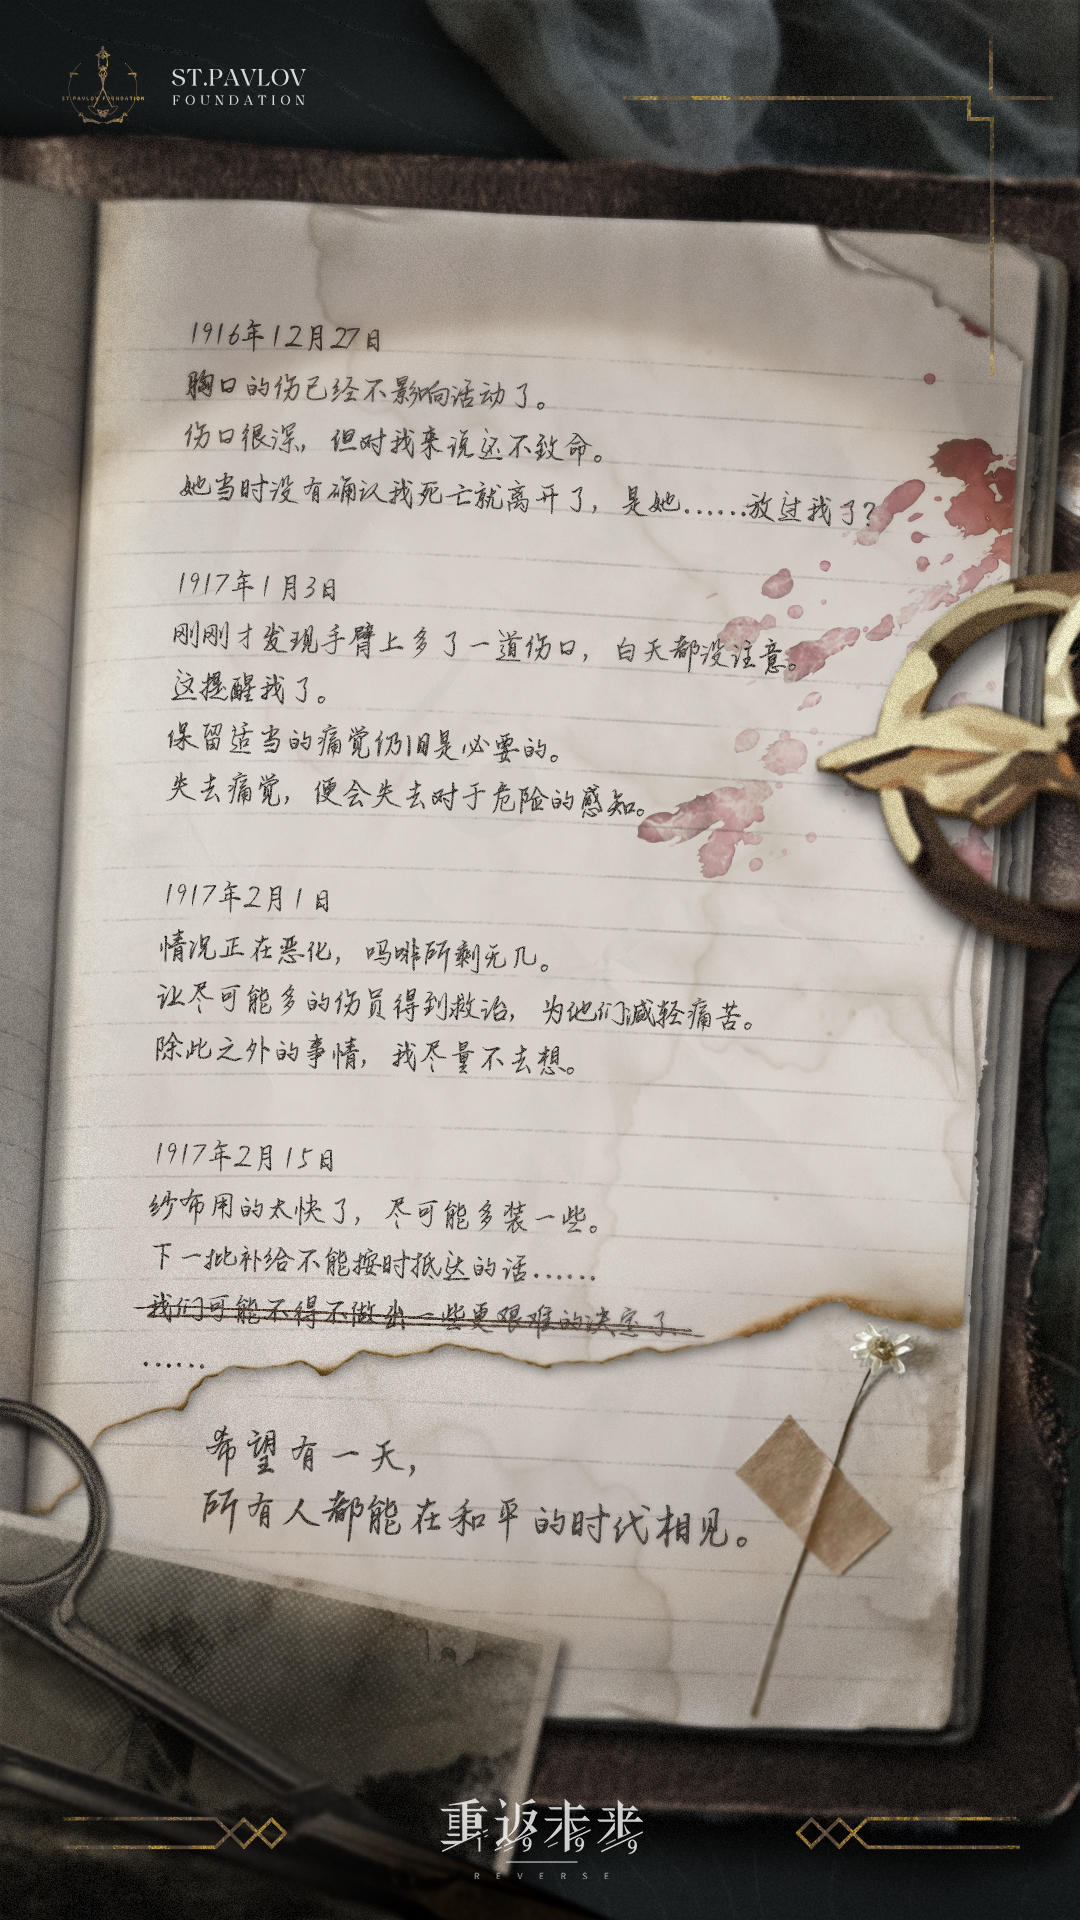 ST.PAVLOV
FOUNDATION
ST.PAVLOV FOUNDATION
1916年12月27日
胸口的伤已经不影响活动了。
伤口很深，但对我来说还不致命。
她当时没有确认我死亡就离开了，是她……放过我了？
1917年1月3日
刚刚才发现手臂上多了一道伤口，白天都没注意。
这提醒我了。
保留适当的痛觉仍旧是必要的。
失去痛觉，便会失去对于危险的感知。
1917年2月1日
情况正在恶化，吗啡所剩无几。
让尽可能多的伤员得到救治，为他们减轻痛苦。
除此之外的事情，我尽量不去想。
1917年2月15日
纱布用的太快了，尽可能多装一些。
下一批补给不能按时抵达的话……
我们可能不得不做出一些更艰难的决定了…
……
希望有一天，
所有人都能在和平的时代相见。
重返未来
1999
REVERSE